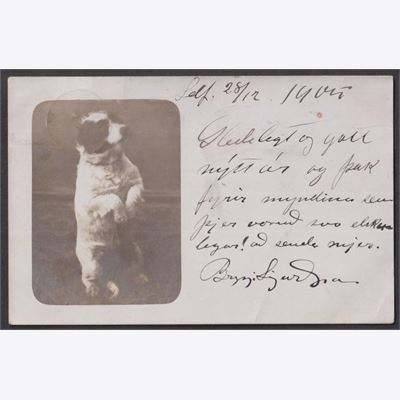 Self. 28/12. 1905
Gledilegt og gott
nýtt ár og þak
fyrir myndina sem
þjer voruð svo elsku
legar! að senda mjer.